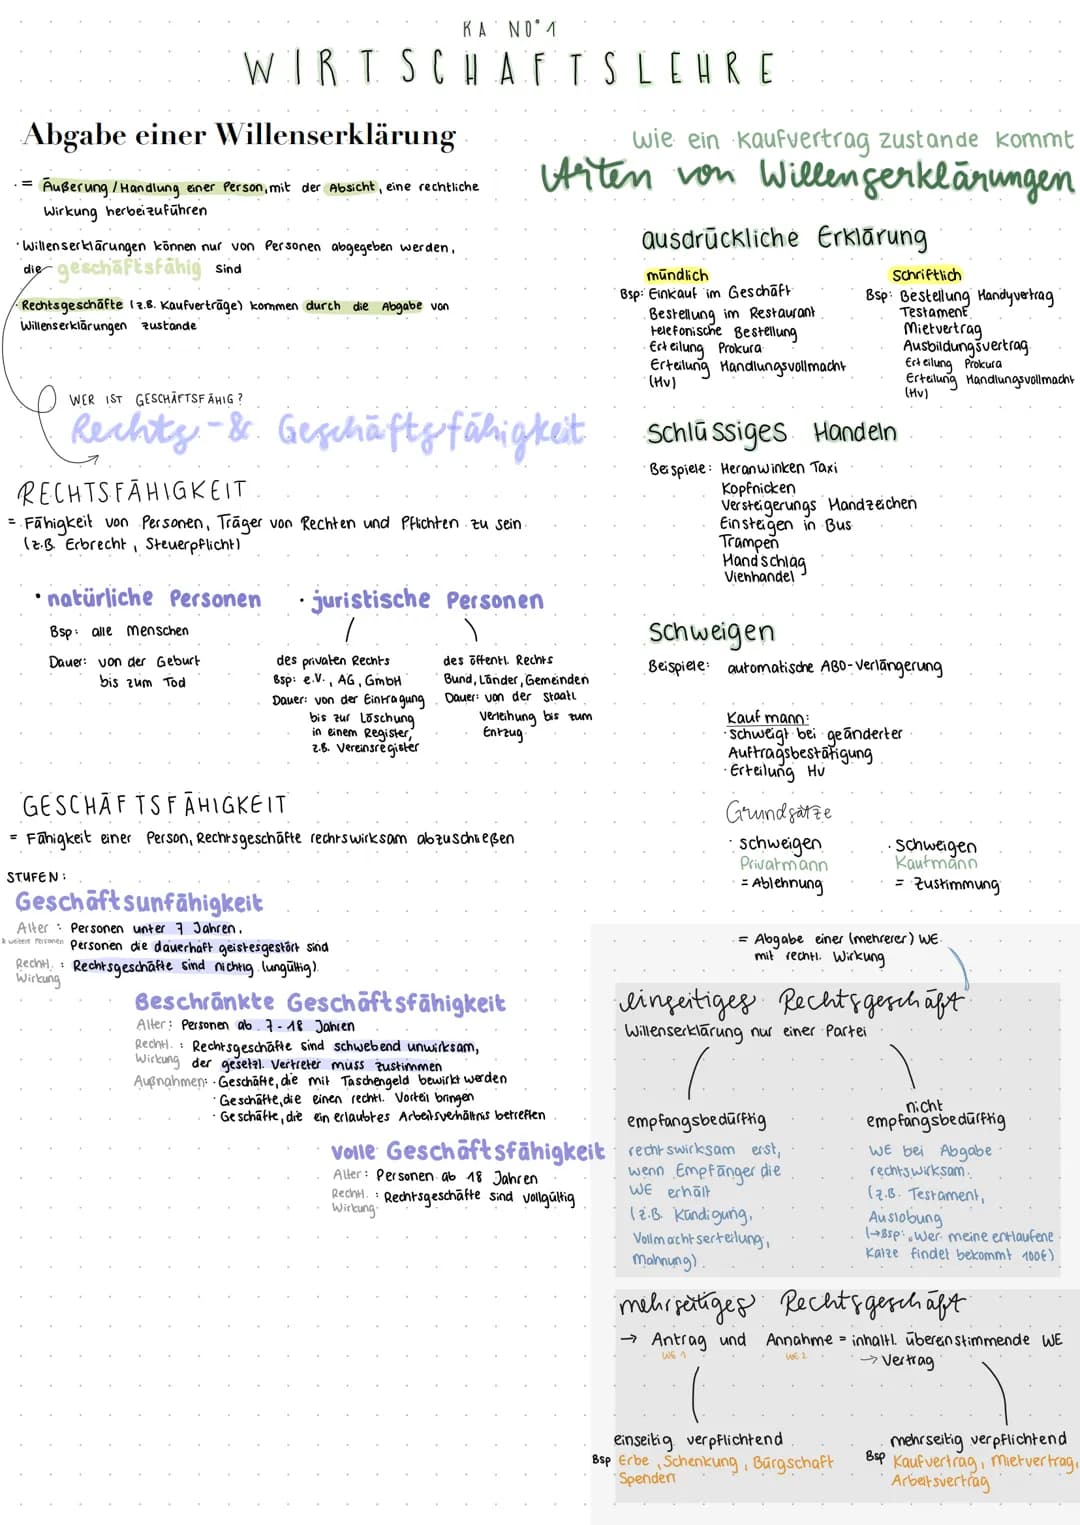 KA NO° 1
WIRTSCHAFTSLEHRE
Abgabe einer Willenserklärung
= Äußerung / Handlung einer Person, mit der Absicht, eine rechtliche
Wirkung herbeizuführen
· Willenserklärungen können nur von Personen abgegeben werden,
die geschäftsfähig sind
· Rechtsgeschäfte (z.B. Kaufverträge) kommen durch die Abgabe von
Willenserklärungen zustande
WER IST GESCHÄFTSFÄHIG?
Rechts-& Geschäftsfähigkeit
RECHTSFÄHIGKEIT
= Fähigkeit von Personen, Träger von Rechten und Pflichten zu sein
(z.B. Erbrecht, Steuerpflicht)
· natürliche Personen
Bsp: alle Menschen
Dauer: von der Geburt
bis zum Tod
· juristische Personen
des privaten Rechts
Bsp: e.V., AG, GmbH
Dauer: von der Eintragung
bis zur Löschung
in einem Register,
z.B. Vereinsregister
des öffentl. Rechts
Bund, Länder, Gemeinden
Dauer: von der staatl.
Verleihung bis zum
Entzug
GESCHÄFTSFÄHIGKEIT
= Fähigkeit einer Person, Rechtsgeschäfte rechtswirksam abzuschließen
STUFEN:
Geschäftsunfähigkeit
Alter : Personen unter 7 Jahren,
& weitere Personen Personen die dauerhaft geistesgestört sind
Rechtl. : Rechtsgeschäfte sind nichtig (ungültig)
Wirkung
Beschränkte Geschäftsfähigkeit
Alter: Personen ab 7-18 Jahren
Rechtl. : Rechtsgeschäfte sind schwebend unwirksam,
Wirkung der gesetzl. Vertreter muss zustimmen
Außnahmen: · Geschäfte, die mit Taschengeld bewirkt werden
· Geschäfte, die einen rechtl. Vorteil bringen
· Geschäfte, die ein erlaubtes Arbeitsverhältnis betreffen
volle Geschäftsfähigkeit
Alter: Personen ab 18 Jahren
Rechtl. : Rechtsgeschäfte sind vollgültig
Wirkung
wie ein Kaufvertrag zustande kommt
Arten von Willenserklärungen
ausdrückliche Erklärung
mündlich
Bsp: Einkauf im Geschäft
Bestellung im Restaurant
telefonische Bestellung
Erteilung Prokura
Erteilung Handlungsvollmacht
(Hv)
Schriftlich
Bsp: Bestellung Handyvertrag
Testament
Mietvertrag
Ausbildungsvertrag
Erteilung Prokura
Erteilung Handlungsvollmacht
(Hv)
Schlüssiges Handeln
Beispiele: Heranwinken Taxi
Kopfnicken
Versteigerungs Handzeichen
Einsteigen in Bus
Trampen
Handschlag
Viehhandel
Schweigen
Beispiele: automatische ABO-Verlängerung
Kaufmann:
· schweigt bei geänderter
Auftragsbestätigung
· Erteilung Hv
Grundsätze
· schweigen
Privatmann
= Ablehnung
· Schweigen
Kaufmann
= Zustimmung
= Abgabe einer (mehrerer) WE
mit rechtl. Wirkung
einseitiges Rechtsgeschäft
Willenserklärung nur einer Partei
empfangsbedürftig
rechtswirksam erst,
wenn Empfänger die
WE erhält
(z.B. Kündigung,
Vollmachtserteilung,
Mahnung)
nicht
empfangsbedürftig
WE bei Abgabe
rechtswirksam.
(z.B. Testament,
Auslobung
(→Bsp: „Wer meine entlaufene
Katze findet bekommt 100€)
mehrseitiges Rechtsgeschäft
→ Antrag und Annahme = inhaltl. übereinstimmende WE
WE 1 WE 2 → Vertrag
einseitig verpflichtend
Bsp Erbe, Schenkung, Bürgschaft
Spenden
mehrseitig verpflichtend
Bsp Kaufvertrag, Mietvertrag,
Arbeitsvertrag